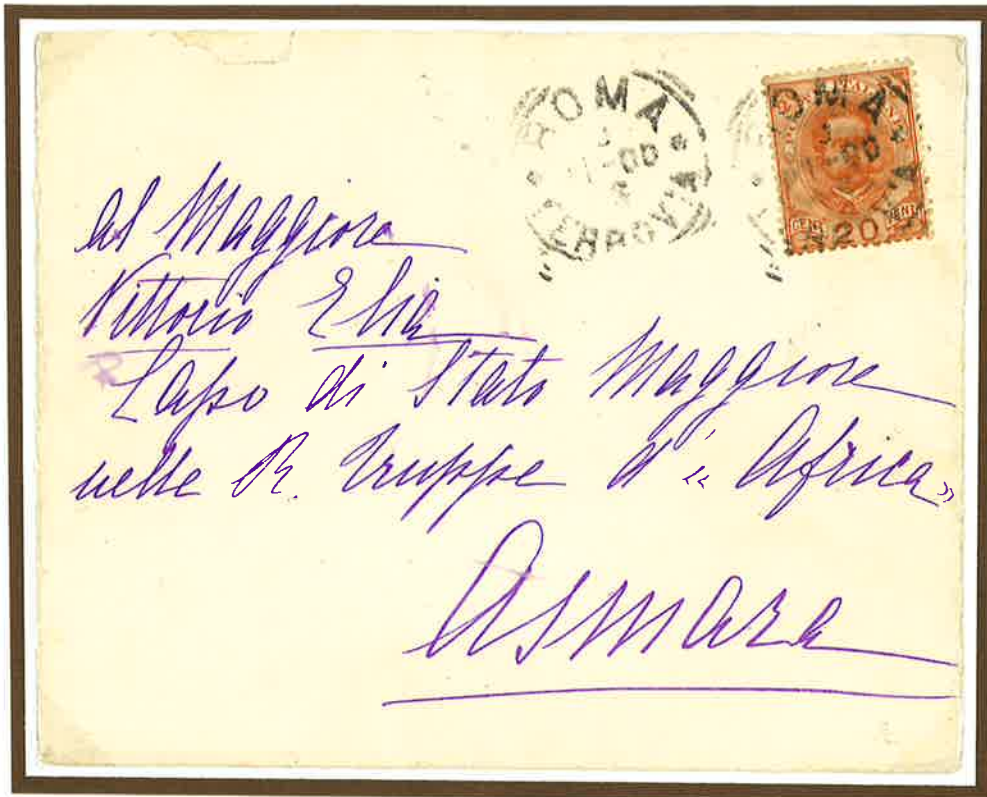 ROMA
FERROVIA
ROMA
POSTE ITALIANE
CENT. 20 CENT.
al Maggiore
Vittorio Elia
Capo di Stato Maggiore
nelle R. Truppe d' « Africa »
Asmara